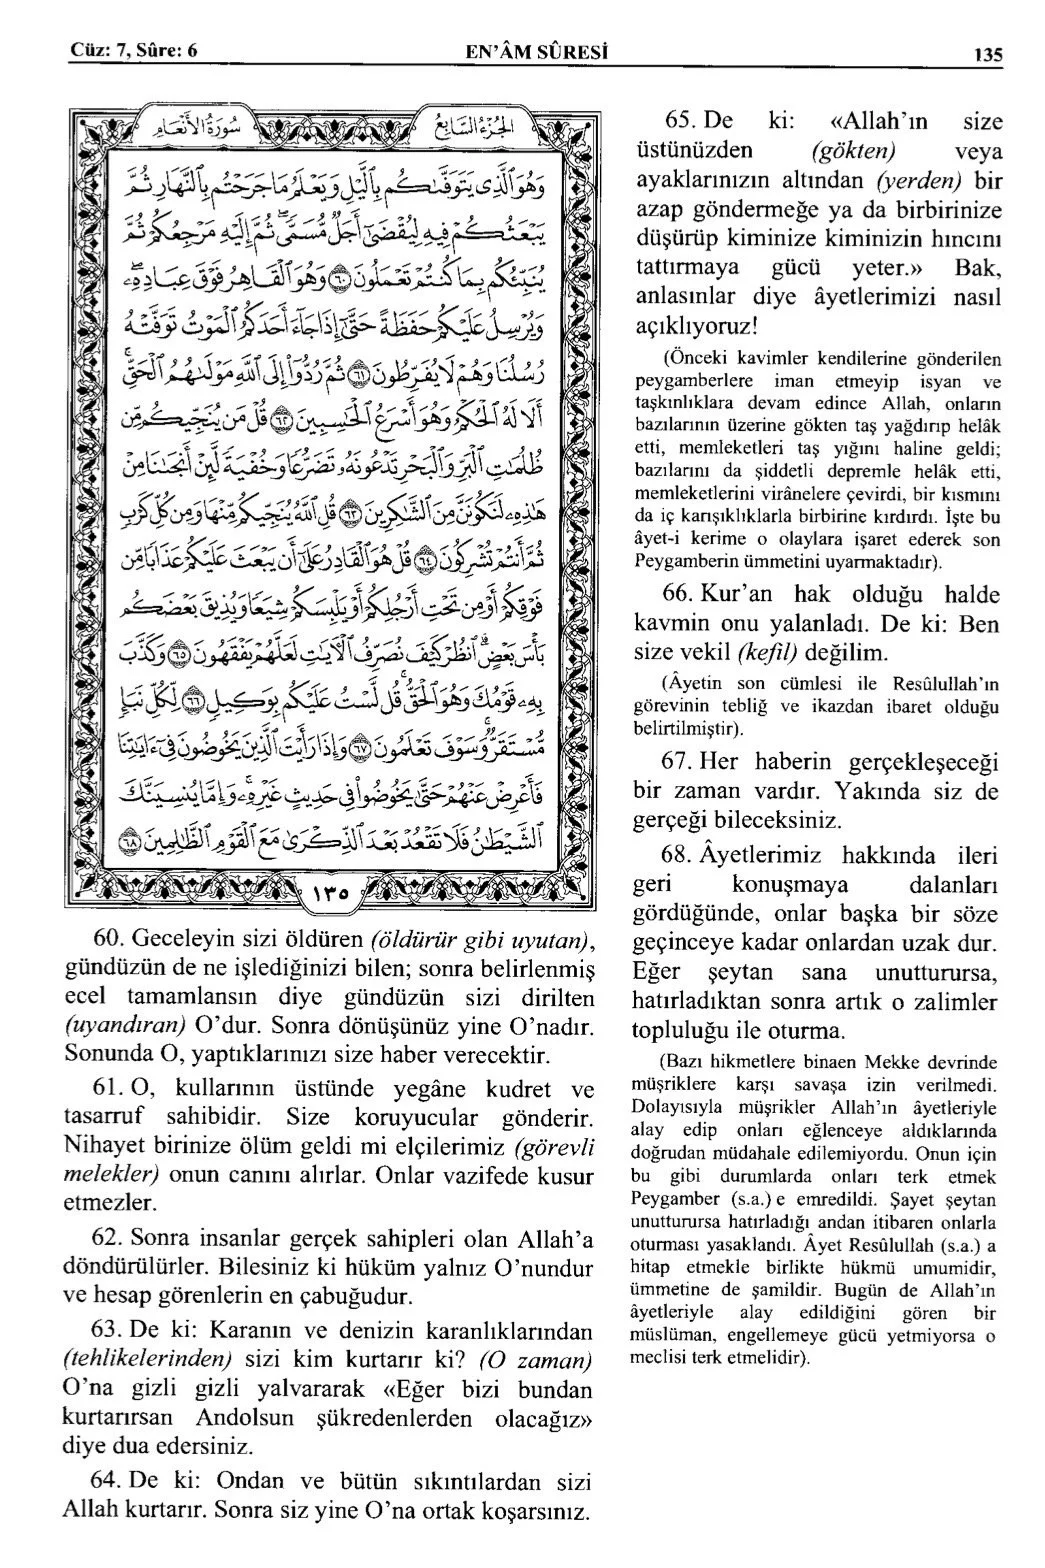 Cüz: 7, Sûre: 6 EN’ÂM SÛRESİ 135
الجزء السابع سورة الأنعام
وَهُوَ الَّذِي يَتَوَفّٰيكُمْ بِالَّيْلِ وَيَعْلَمُ مَا جَرَحْتُمْ بِالنَّهَارِ ثُمَّ
يَبْعَثُكُمْ فِيهِ لِيُقْضٰٓى اَجَلٌ مُسَمًّى ثُمَّ اِلَيْهِ مَرْجِعُكُمْ ثُمَّ
يُنَبِّئُكُمْ بِمَا كُنْتُمْ تَعْمَلُونَ ﴿٦٠﴾ وَهُوَ الْقَاهِرُ فَوْقَ عِبَادِهٖ
وَيُرْسِلُ عَلَيْكُمْ حَفَظَةً حَتّٰٓى اِذَا جَٓاءَ اَحَدَكُمُ الْمَوْتُ تَوَفَّتْهُ
رُسُلُنَا وَهُمْ لَا يُفَرِّطُونَ ﴿٦١﴾ ثُمَّ رُدُّٓوا اِلَى اللّٰهِ مَوْلٰيهُمُ الْحَقِّ
اَلَا لَهُ الْحُكْمُ وَهُوَ اَسْرَعُ الْحَاسِبِينَ ﴿٦٢﴾ قُلْ مَنْ يُنَجِّيكُمْ مِنْ
ظُلُمَاتِ الْبَرِّ وَالْبَحْرِ تَدْعُونَهُ تَضَرُّعًا وَخُفْيَةً لَئِنْ اَنْجٰينَا مِنْ
هٰذِهٖ لَنَكُونَنَّ مِنَ الشَّاكِرِينَ ﴿٦٣﴾ قُلِ اللّٰهُ يُنَجِّيكُمْ مِنْهَا وَمِنْ كُلِّ كَرْبٍ
ثُمَّ اَنْتُمْ تُشْرِكُونَ ﴿٦٤﴾ قُلْ هُوَ الْقَادِرُ عَلٰٓى اَنْ يَبْعَثَ عَلَيْكُمْ عَذَابًا مِنْ
فَوْقِكُمْ اَوْ مِنْ تَحْتِ اَرْجُلِكُمْ اَوْ يَلْبِسَكُمْ شِيَعًا وَيُذِيقَ بَعْضَكُمْ
بَأْسَ بَعْضٍ اُنْظُرْ كَيْفَ نُصَرِّفُ الْاٰيَاتِ لَعَلَّهُمْ يَفْقَهُونَ ﴿٦٥﴾ وَكَذَّبَ
بِهٖ قَوْمُكَ وَهُوَ الْحَقُّ قُلْ لَسْتُ عَلَيْكُمْ بِوَكِيلٍ ﴿٦٦﴾ لِكُلِّ نَبَاٍ
مُسْتَقَرٌّ وَسَوْفَ تَعْلَمُونَ ﴿٦٧﴾ وَاِذَا رَاَيْتَ الَّذِينَ يَخُوضُونَ فِٓى اٰيَاتِنَا
فَاَعْرِضْ عَنْهُمْ حَتّٰى يَخُوضُوا فِى حَدِيثٍ غَيْرِهٖ وَاِمَّا يُنْسِيَنَّكَ
الشَّيْطَانُ فَلَا تَقْعُدْ بَعْدَ الذِّكْرٰى مَعَ الْقَوْمِ الظَّالِمِينَ ﴿٦٨﴾
١٣٥
60. Geceleyin sizi öldüren (öldürür gibi uyutan),
gündüzün de ne işlediğinizi bilen; sonra belirlenmiş
ecel tamamlansın diye gündüzün sizi dirilten
(uyandıran) O’dur. Sonra dönüşünüz yine O’nadır.
Sonunda O, yaptıklarınızı size haber verecektir.
61. O, kullarının üstünde yegâne kudret ve
tasarruf sahibidir. Size koruyucular gönderir.
Nihayet birinize ölüm geldi mi elçilerimiz (görevli
melekler) onun canını alırlar. Onlar vazifede kusur
etmezler.
62. Sonra insanlar gerçek sahipleri olan Allah’a
döndürülürler. Bilesiniz ki hüküm yalnız O’nundur
ve hesap görenlerin en çabuğudur.
63. De ki: Karanın ve denizin karanlıklarından
(tehlikelerinden) sizi kim kurtarır ki? (O zaman)
O’na gizli gizli yalvararak «Eğer bizi bundan
kurtarırsan Andolsun şükredenlerden olacağız»
diye dua edersiniz.
64. De ki: Ondan ve bütün sıkıntılardan sizi
Allah kurtarır. Sonra siz yine O’na ortak koşarsınız.
65. De ki: «Allah’ın size
üstünüzden (gökten) veya
ayaklarınızın altından (yerden) bir
azap göndermeğe ya da birbirinize
düşürüp kiminize kiminizin hıncını
tattırmaya gücü yeter.» Bak,
anlasınlar diye âyetlerimizi nasıl
açıklıyoruz!
(Önceki kavimler kendilerine gönderilen
peygamberlere iman etmeyip isyan ve
taşkınlıklara devam edince Allah, onların
bazılarının üzerine gökten taş yağdırıp helâk
etti, memleketleri taş yığını haline geldi;
bazılarını da şiddetli depremle helâk etti,
memleketlerini virânelere çevirdi, bir kısmını
da iç karışıklıklarla birbirine kırdırdı. İşte bu
âyet-i kerime o olaylara işaret ederek son
Peygamberin ümmetini uyarmaktadır).
66. Kur’an hak olduğu halde
kavmin onu yalanladı. De ki: Ben
size vekil (kefil) değilim.
(Âyetin son cümlesi ile Resûlullah’ın
görevinin tebliğ ve ikazdan ibaret olduğu
belirtilmiştir).
67. Her haberin gerçekleşeceği
bir zaman vardır. Yakında siz de
gerçeği bileceksiniz.
68. Âyetlerimiz hakkında ileri
geri konuşmaya dalanları
gördüğünde, onlar başka bir söze
geçinceye kadar onlardan uzak dur.
Eğer şeytan sana unutturursa,
hatırladıktan sonra artık o zalimler
topluluğu ile oturma.
(Bazı hikmetlere binaen Mekke devrinde
müşriklere karşı savaşa izin verilmedi.
Dolayısıyla müşrikler Allah’ın âyetleriyle
alay edip onları eğlenceye aldıklarında
doğrudan müdahale edilemiyordu. Onun için
bu gibi durumlarda onları terk etmek
Peygamber (s.a.) e emredildi. Şayet şeytan
unutturursa hatırladığı andan itibaren onlarla
oturması yasaklandı. Âyet Resûlullah (s.a.) a
hitap etmekle birlikte hükmü umumidir,
ümmetine de şamildir. Bugün de Allah’ın
âyetleriyle alay edildiğini gören bir
müslüman, engellemeye gücü yetmiyorsa o
meclisi terk etmelidir).